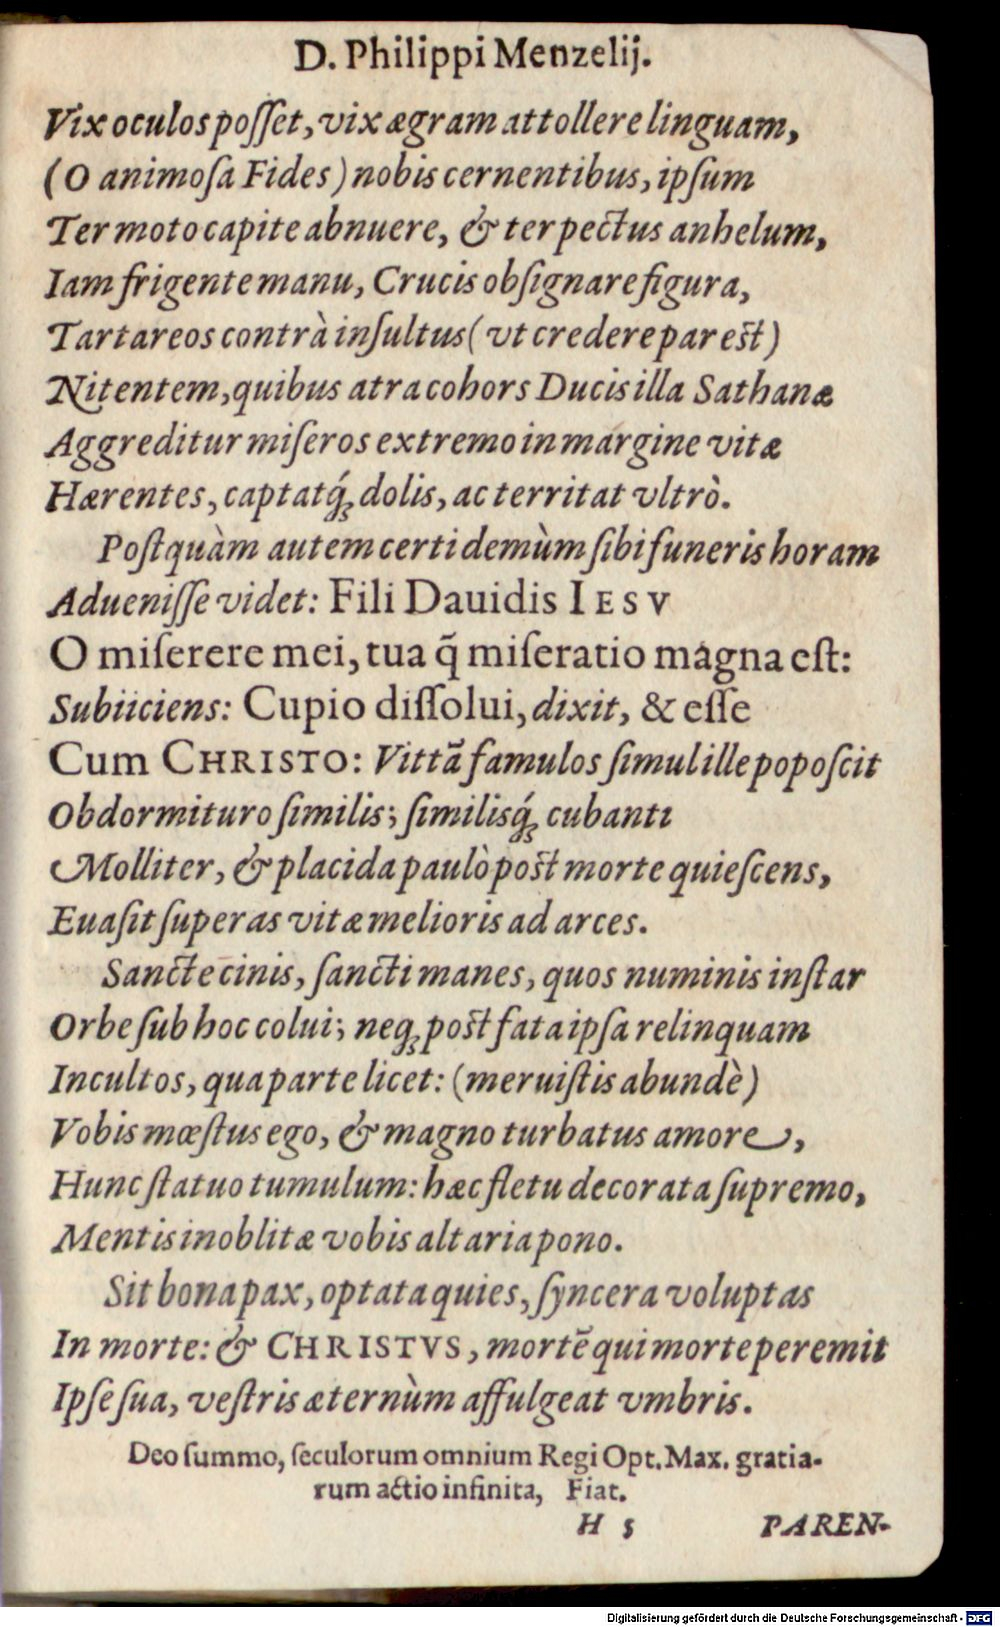 D. Philippi Menzelij.
Vix oculos poſſet, vix ægram attollere linguam,
(O animoſa Fides) nobis cernentibus, ipſum
Ter moto capite abnuere, & ter pectus anhelum,
Iam frigente manu, Crucis obſignare figura,
Tartareos contrà inſultus (vt credere par eſt)
Nitentem, quibus atra cohors Ducis illa Sathanæ
Aggreditur miſeros extremo in margine vitæ
Hærentes, captatq́ꝫ dolis, ac territat vltrò.
Poſtquàm autem certi demùm ſibi funeris horam
Adueniſſe videt: Fili Dauidis IESV
O miſerere mei, tua q̃ miſeratio magna eſt:
Subiiciens: Cupio diſſolui, dixit, & eſſe
Cum CHRISTO: Vittã famulos ſimul ille popoſcit
Obdormituro ſimilis; ſimilisq́ꝫ cubanti
Molliter, & placida paulò poſt morte quieſcens,
Euaſit ſuperas vitæ melioris ad arces.
Sancte cinis, ſancti manes, quos numinis inſtar
Orbe ſub hoc colui; neqꝫ poſt fata ipſa relinquam
Incultos, qua parte licet: (meruiſtis abundè)
Vobis mœſtus ego, & magno turbatus amore,
Hunc ſtatuo tumulum: hæc fletu decorata ſupremo,
Mentis inoblitæ vobis altaria pono.
Sit bona pax, optata quies, ſyncera voluptas
In morte: & CHRISTVS, mortẽ qui morte peremit
Ipſe ſua, veſtris æternùm affulgeat vmbris.
Deo ſummo, ſeculorum omnium Regi Opt. Max. gratia-
rum actio infinita, Fiat.
H 5 PAREN-
Digitalisierung gefördert durch die Deutsche Forschungsgemeinschaft - DFG